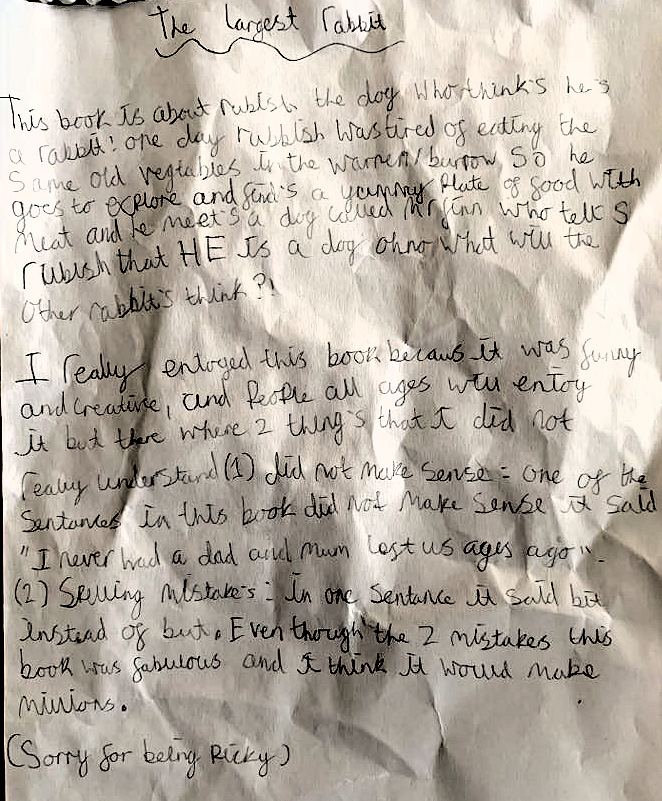 The largest rabbit
This book is about rubish the dog who think's he's
a rabbit! one day rubbish was tired of eating the
Same old vegtables in the warren/burrow So he
goes to explore and find's a yummy plate of food with
meat and he meet's a dog called Mr finn who tell's
rubish that HE is a dog ohno what will the
other rabbit's think?!
I really enjoyed this book becaus it was funny
and creative, and people all ages will enjoy
it but there where 2 thing's that I did not
really understand (1) did not make sense = one of the
Sentances in this book did not make sense it said
"I never had a dad and mum lost us ages ago".
(2) Spelling mistake's = in one sentance it said bit
instead of but. Even though the 2 mistakes this
book was fabulous and I think it would make
millions.
(Sorry for being Picky)